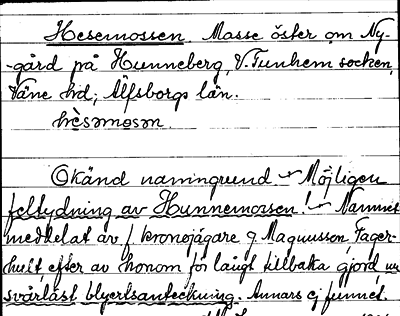 Hesemossen. Mosse öster om Ny-
-gård på Hunneberg, V. Tunhem socken,
Väne hd; Älfsborgs län.
hèsəmosən.
Okänd namngrund. – Möjligen
feltydning av Hunnemossen! – Namnet
meddelat av f. kronojägare G. Magnusson, Fager-
hult efter av honom för långt tillbaka gjord, nu
svårläst blyertsanteckning. Annars ej funnet.